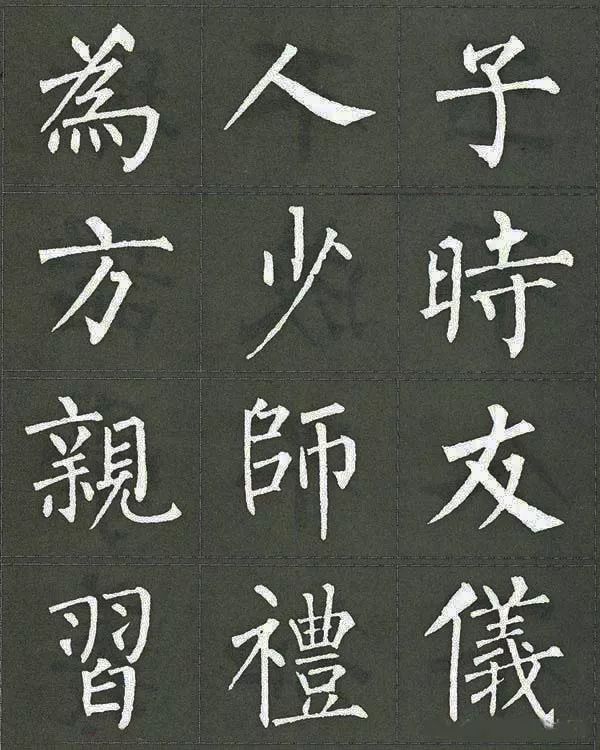 為人子
方少時
親師友
習禮儀